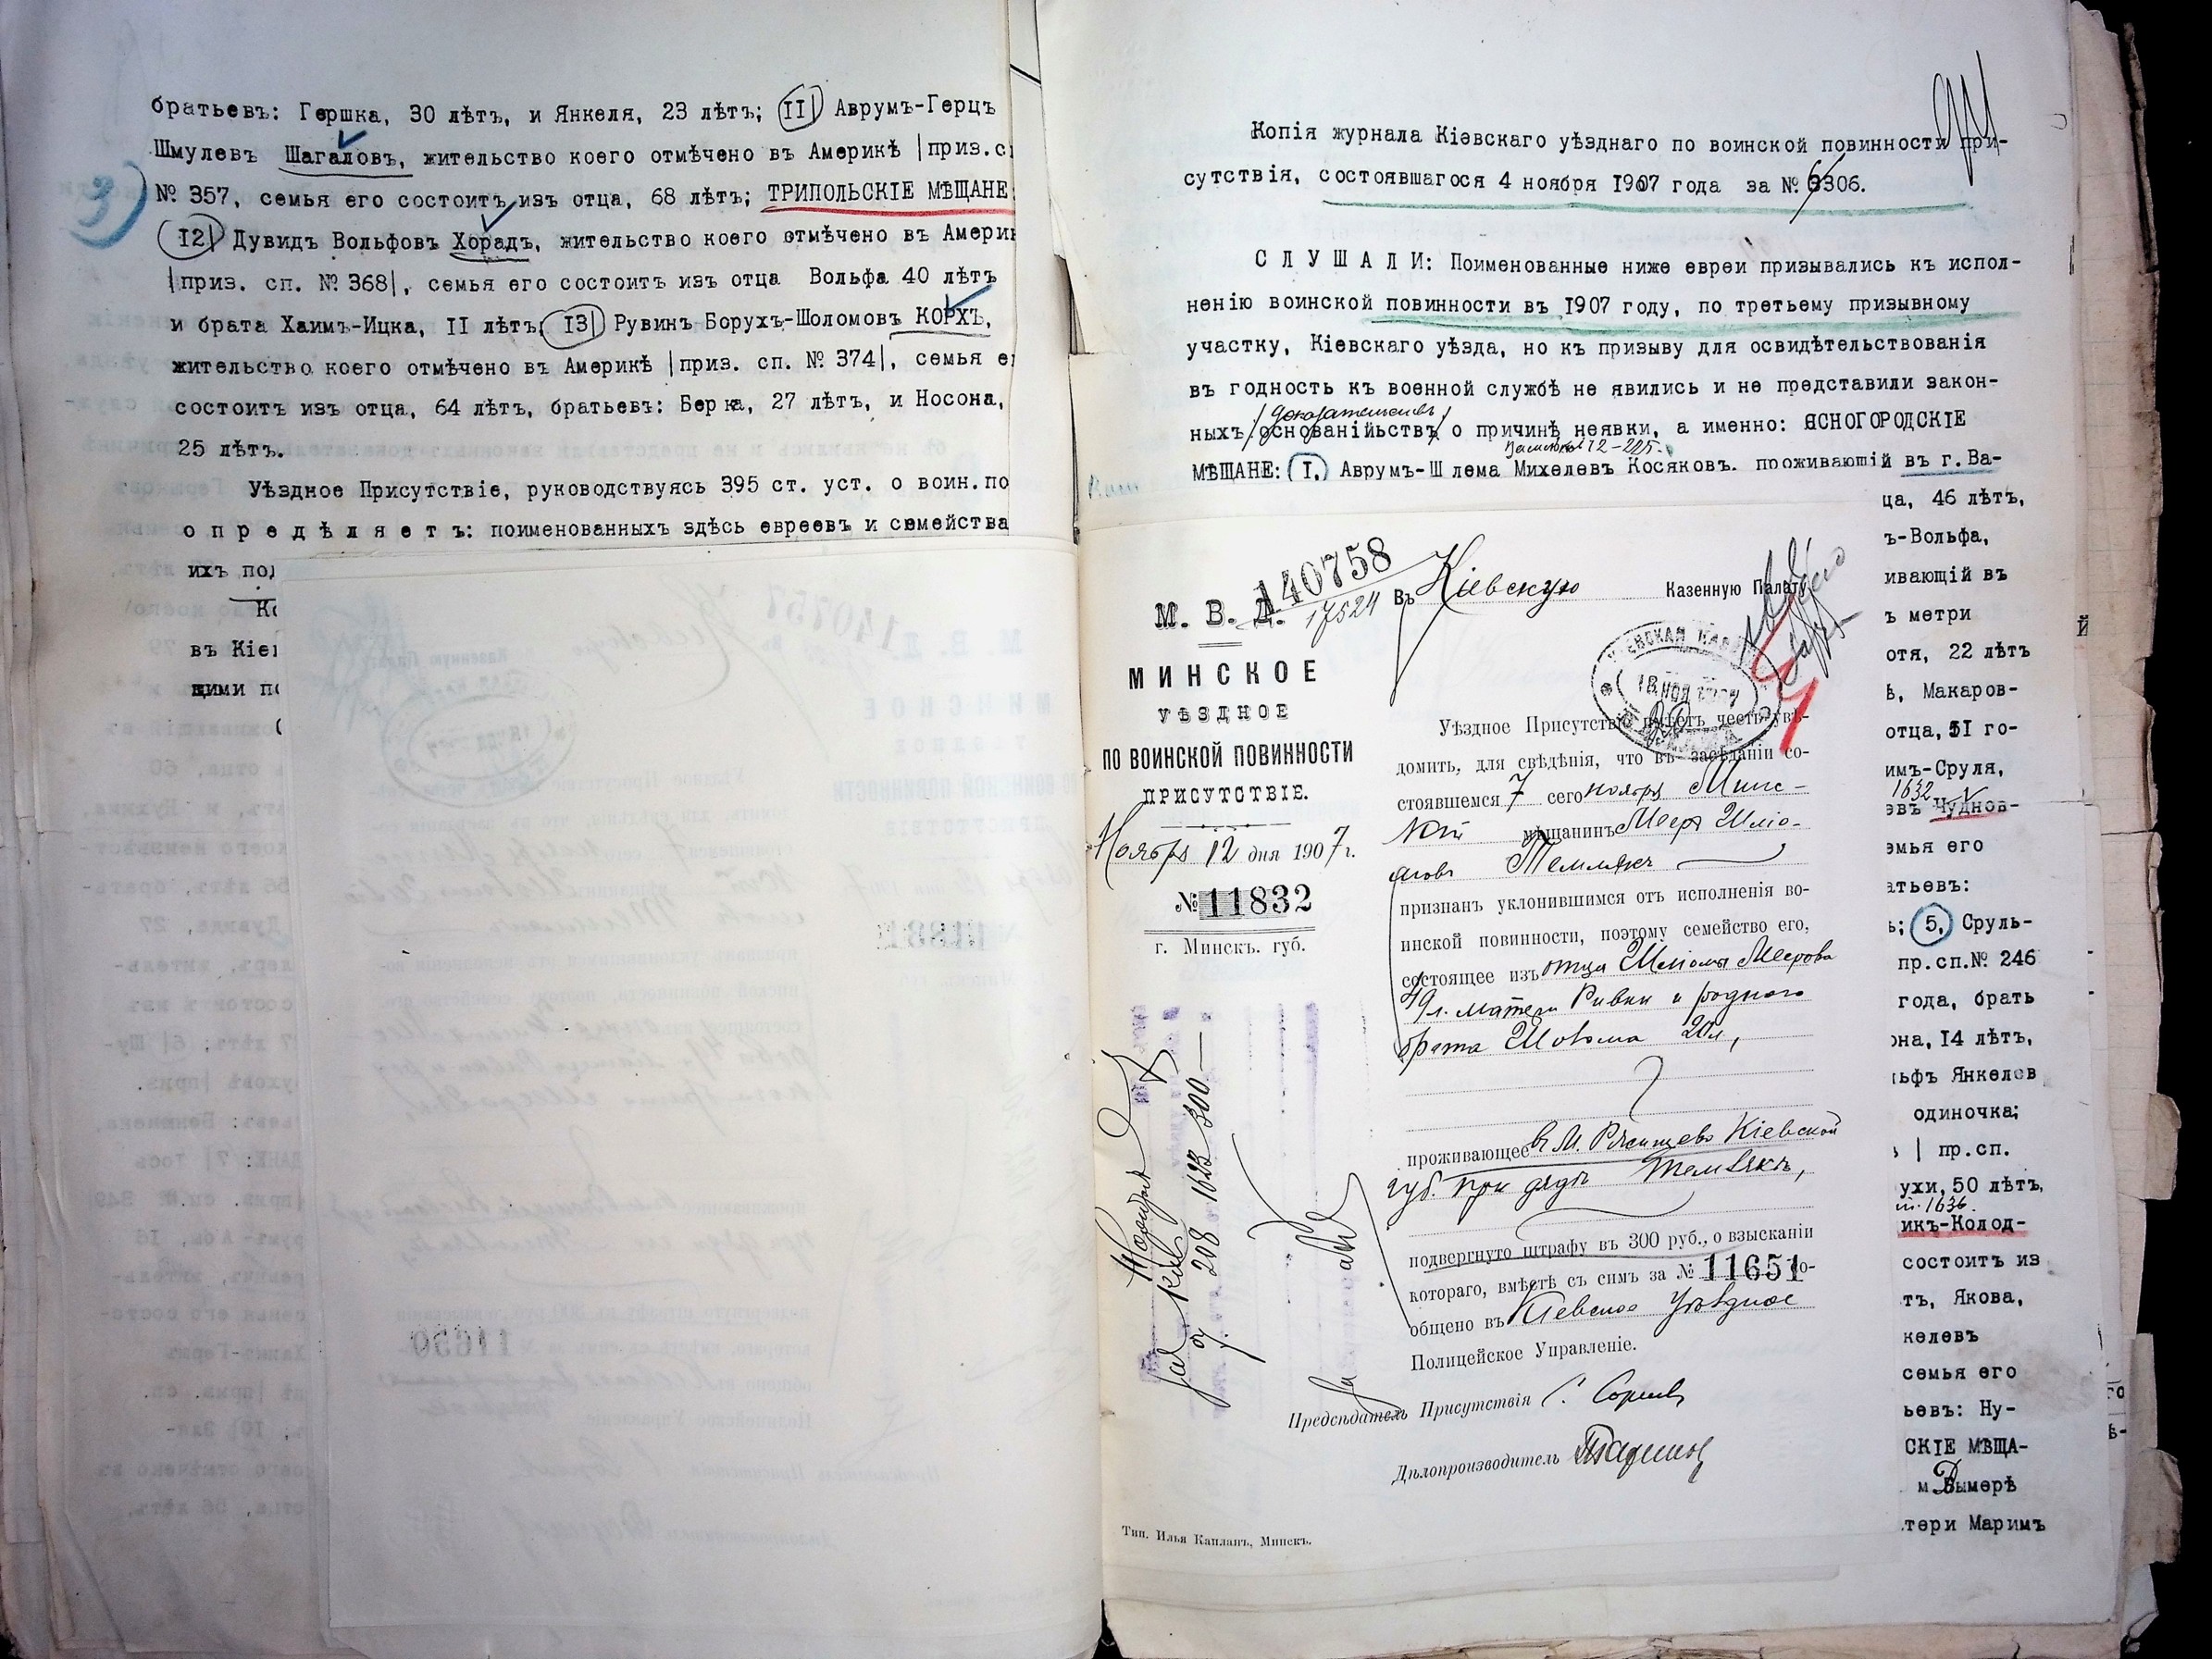 братьевъ: Гершка, 30 лѣтъ, и Янкеля, 23 лѣтъ; II| Аврумъ-Герцъ
Шмулевъ Шагаловъ, жительство коего отмѣчено въ Америкѣ |приз.с
3)
№ 357, семья его состоитъ изъ отца, 68 лѣтъ; ТРИПОЛЬСКІЕ МѢЩАНЕ
I2| Дувидъ Вольфовъ Хорадъ, жительство коего отмѣчено въ Амери
|приз. сп. № 368|, семья его состоит изъ отца Вольфа 40 лѣтъ
и брата Хаимъ-Ицка, II лѣтъ; I3| Рувинъ Борухъ-Шоломовъ КОРХЪ,
жительство коего отмѣчено въ Америкѣ |приз. сп. № 374|, семья е
состоитъ изъ отца, 64 лѣтъ, братьевъ: Берка, 27 лѣтъ, и Носона,
25 лѣтъ.
Уѣздное Присутствіе, руководствуясь 395 ст. уст. о воин.по
о п р е д ѣ л я е т ъ: поименованныхъ здѣсь евреевъ и семейства
ихъ под
Ко
въ Кіев
щими по
Копія журнала Кіевскаго уѣзднаго по воинской повинности при-
сутствія, состоявшагося 4 ноября 1907 года за № 6306.
С Л У Ш А Л И: Поименованные ниже евреи призывались къ испол-
ненію воинской повинности въ 1907 году, по третьему призывному
участку, Кіевскаго уѣзда, но къ призыву для освидѣтельствованія
въ годность къ военной службѣ не явились и не представили закон-
доказательствъ
ныхъ основанійьствъ о причинѣ неявки, а именно: ЯСНОГОРОДСКІЕ
МѢЩАНЕ: I, Аврумъ-Шлема Михелевъ Косяковъ. проживающій въ г. Ва-
ца, 46 лѣтъ,
ъ-Вольфа,
ивающій въ
ъ метри
отя, 22 лѣтъ
ѣ, Макаров-
отца, 51 го-
имъ-Сруля,
1632
евъ Чуднов-
емья его
атьевъ:
ь; 5, Сруль-
пр.сп.№ 246
года, брать
она, 14 лѣтъ,
ьфъ Янкелев
одиночка;
ъ | пр.сп.
ухи, 50 лѣтъ,
1636
икъ-Колод-
состоитъ из
тъ, Якова,
келевъ
семья его
ьевъ: Ну-
СКІЕ МѢЩА-
м Дымерѣ
тери Маримъ
140758
17524
М. В. Д.
МИНСКОЕ
УѢЗДНОЕ
ПО ВОИНСКОЙ ПОВИННОСТИ
ПРИСУТСТВІЕ.
Ноября 12 дня 1907 г.
№ 11832
г. Минскъ. губ.
Въ Кіевскую Казенную Палату
Уѣздное Присутствіе имѣетъ честь увѣ-
домить, для свѣдѣнія, что въ засѣданіи со-
стоявшемся 7 сего ноября Минс-
кій мѣщанинъ Мееръ Шліо-
мовъ Темлякъ
признанъ уклонившимся отъ исполненія во-
инской повинности, поэтому семейство его,
состоящее изъ отца Шліомы Меерова
49 л. матери Ривки и родного
брата Шовома 20 л,
проживающее въ М. Ржищево Кіевской
губ. при дядѣ Темлякъ,
подвергнуто штрафу въ 300 руб., о взысканіи
котораго, вмѣстѣ съ симъ за № 11651 со-
общено въ Кіевское Уѣздное
Полицейское Управленіе.
Предсѣдатель Присутствія
Дѣлопроизводитель
208 1633 300 —
Тип. Илья Капланъ, Минскъ.